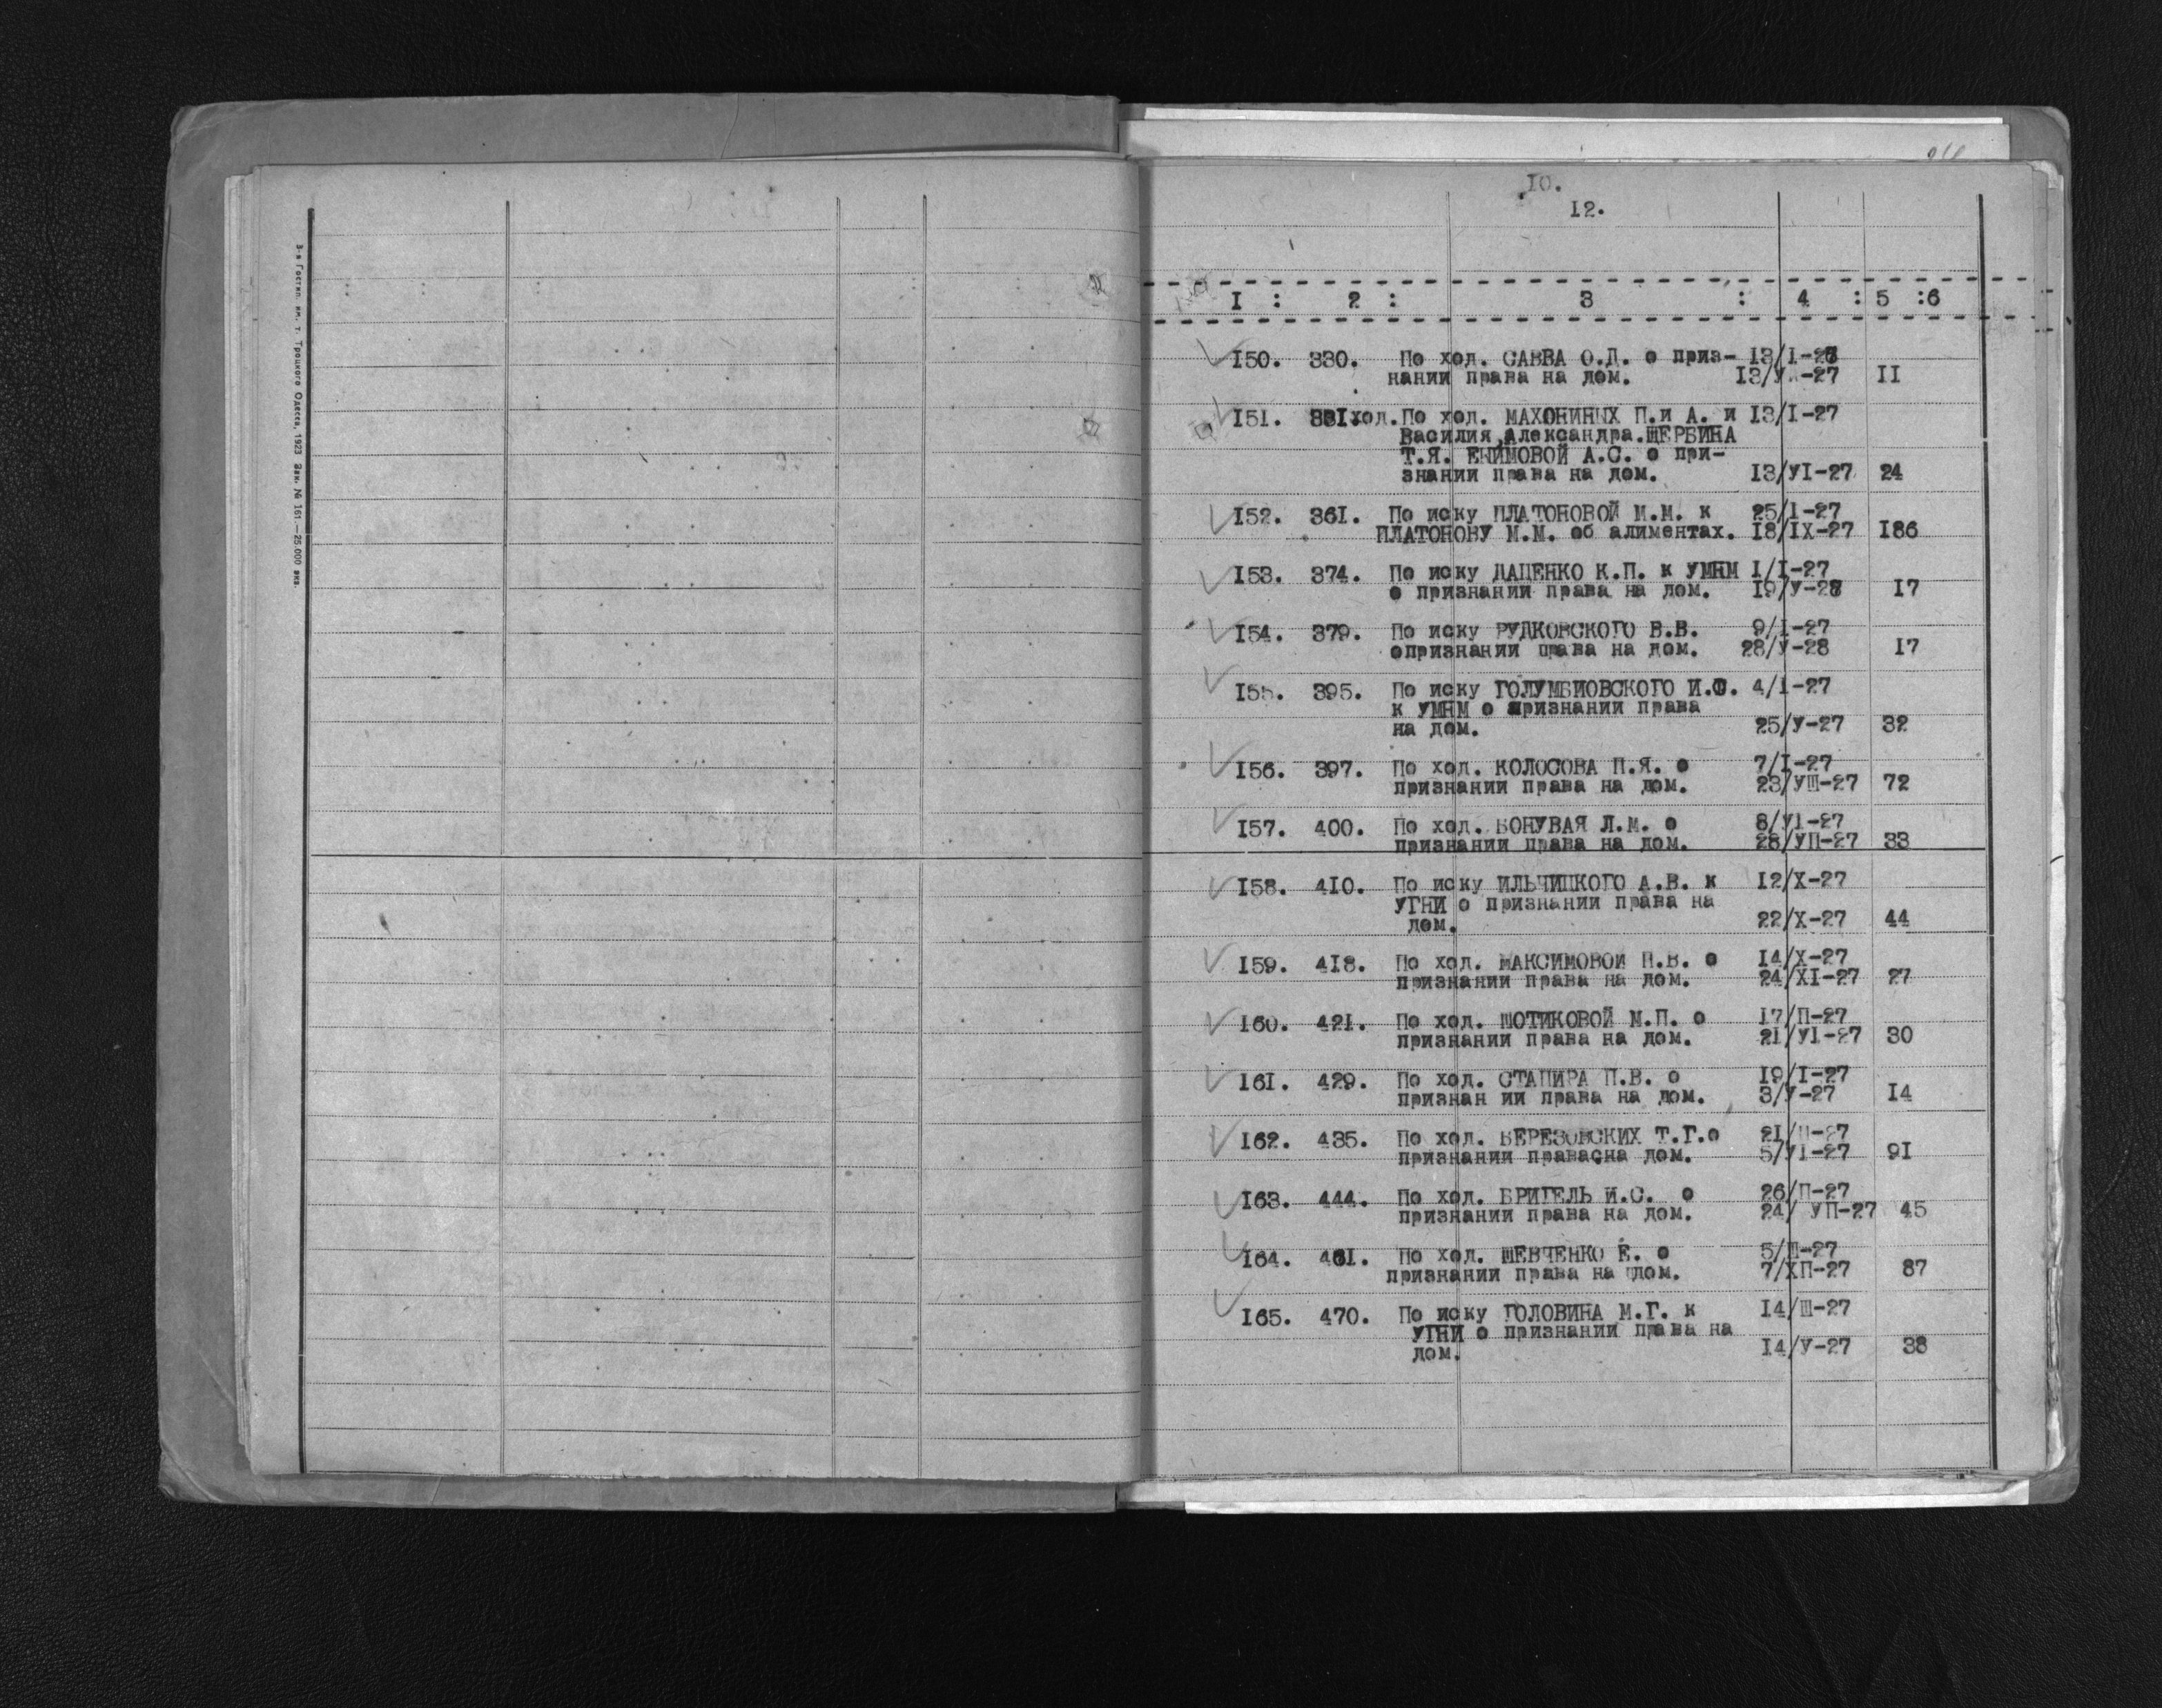 3-я Гостип. им. т. Троцкого Одесса, 1923 Зак. № 161.—25.000 экз.
10.
12.
I : 2 : 3 : 4 : 5 :6
I50. 330. По ход. САВВА О.Д. о приз- I3/I-27
нании права на дом. I3/У -27 II
I51. 331 ход. По ход. МАХОНИНЫХ П.и А. и I3/I-27
Василия,Александра.ЩЕРБИНА
Т.Я. А.С. о при-
знании права на дом. I3/УI-27 24
I52. 361. По иску ПЛАТОНОВОЙ М.М. к 25/I-27
ПЛАТОНОВУ М.М. об алиментах. I8/IX-27 I86
I53. 374. По иску ДАЦЕНКО К.П. к УМНМ I/I-27
о признании права на дом. I9/У-28 I7
I54. 379. По иску РУДКОВСКОГО В.В. 9/I-27
опризнании права на дом. 28/У-28 I7
I55. 395. По иску ГОЛУМБИОВСКОГО И.Ф. 4/I-27
к УМНМ о признании права
на дом. 25/У-27 32
I56. 397. По ход. КОЛОСОВА П.Я. о 7/I-27
признании права на дом. 23/УШ-27 72
I57. 400. По ход. БОНУВАЯ Л.М. о 8/УI-27
признании права на дом. 28/УП-27 33
I58. 410. По иску ИЛЬЧИЦКОГО А.В. к I2/X-27
УГНИ о признании права на
дом. 22/X-27 44
I59. 418. По ход. МАКСИМОВОЙ П.В. о I4/X-27
признании права на дом. 24/XI-27 27
I60. 421. По ход. ШОТИКОВОЙ М.П. о I7/П-27
признании права на дом. 21/УI-27 30
I61. 429. По ход. СТАПИРА П.В. о I9/I-27
признан ии права на дом. 3/У-27 I4
I62. 435. По ход. БЕРЕЗОВСКИХ Т.Г.о 21/П-27
признании правасна дом. 5/УI-27 9I
I63. 444. По ход. БРИГЕЛЬ И.С. о 26/П-27
признании права на дом. 24/ УП-27 45
I64. 461. По ход. ШЕВЧЕНКО Е. о 5/Ш-27
признании права на дом. 7/ХП-27 87
I65. 470. По иску ГОЛОВИНА М.Г. к I4/Ш-27
УГНИ о признании права на
дом. I4/У-27 38